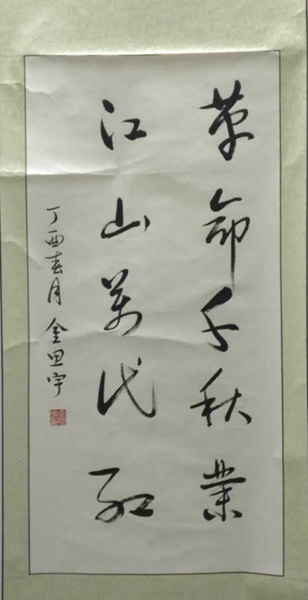 革命千秋業
江山萬代红
丁酉春月 金思宇